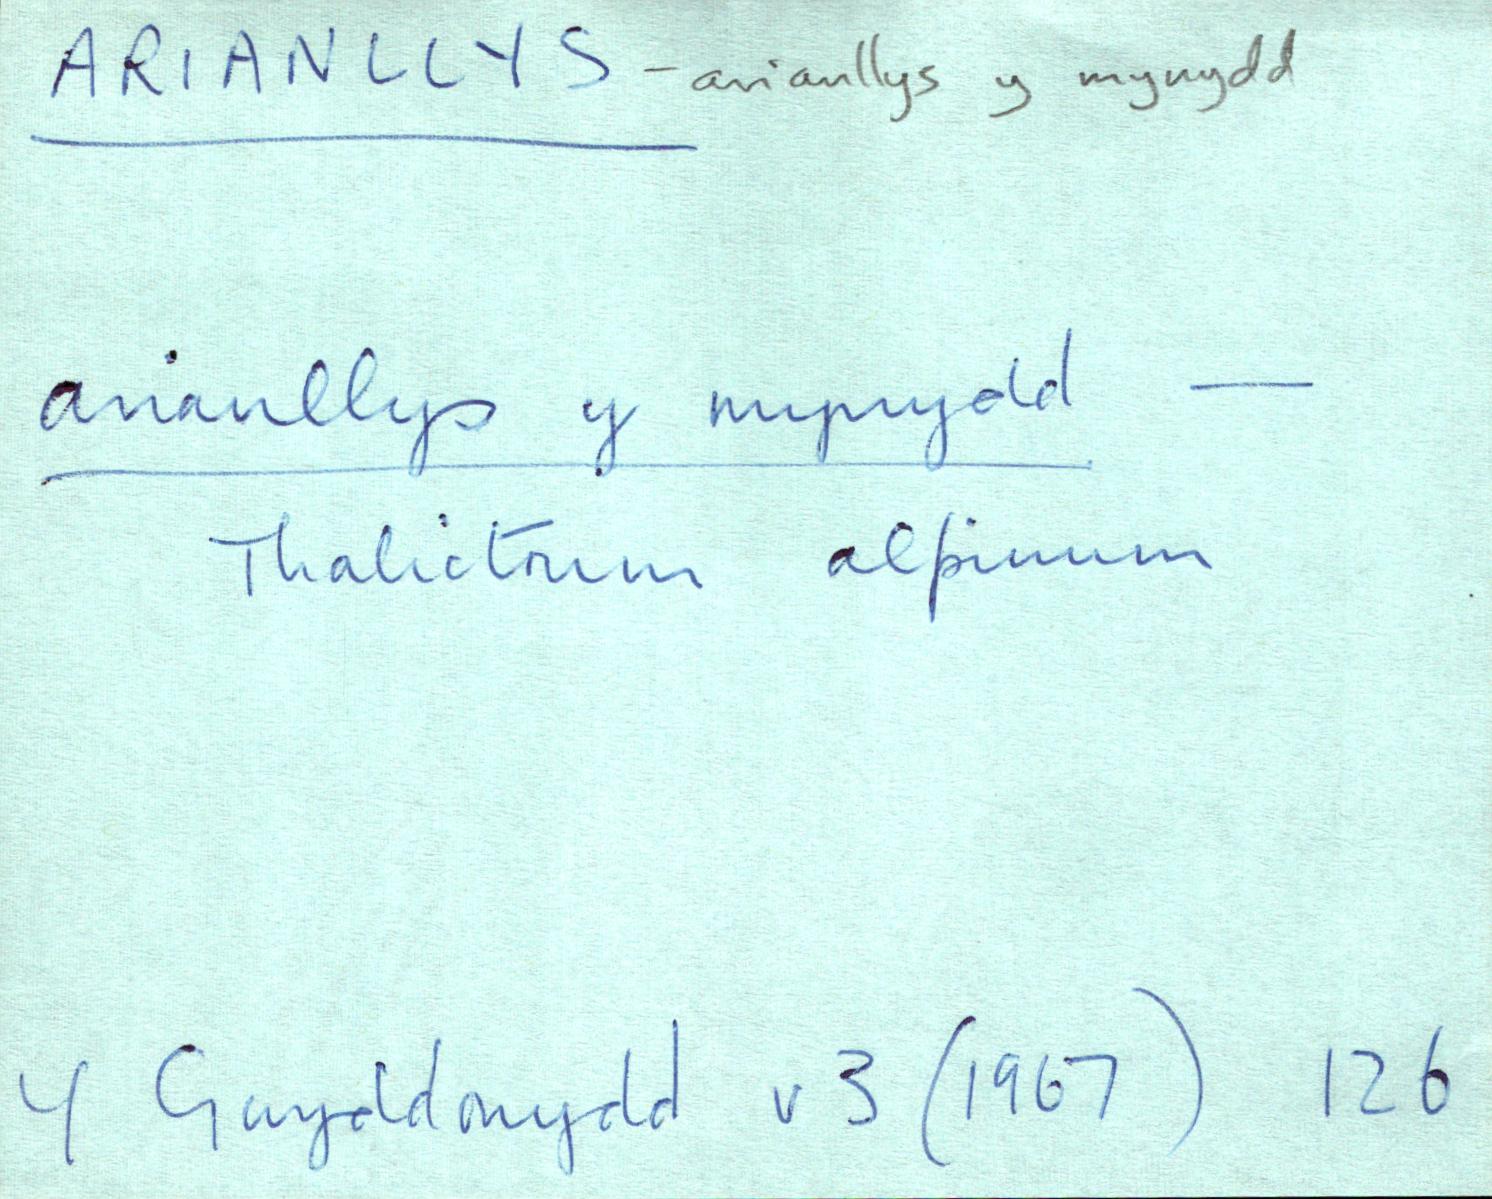 ARIANLLYS - arianllys y mynydd
arianllys y mynydd —
Thalictrum alpinum
Y Gwyddonydd v 3 (1967) 126